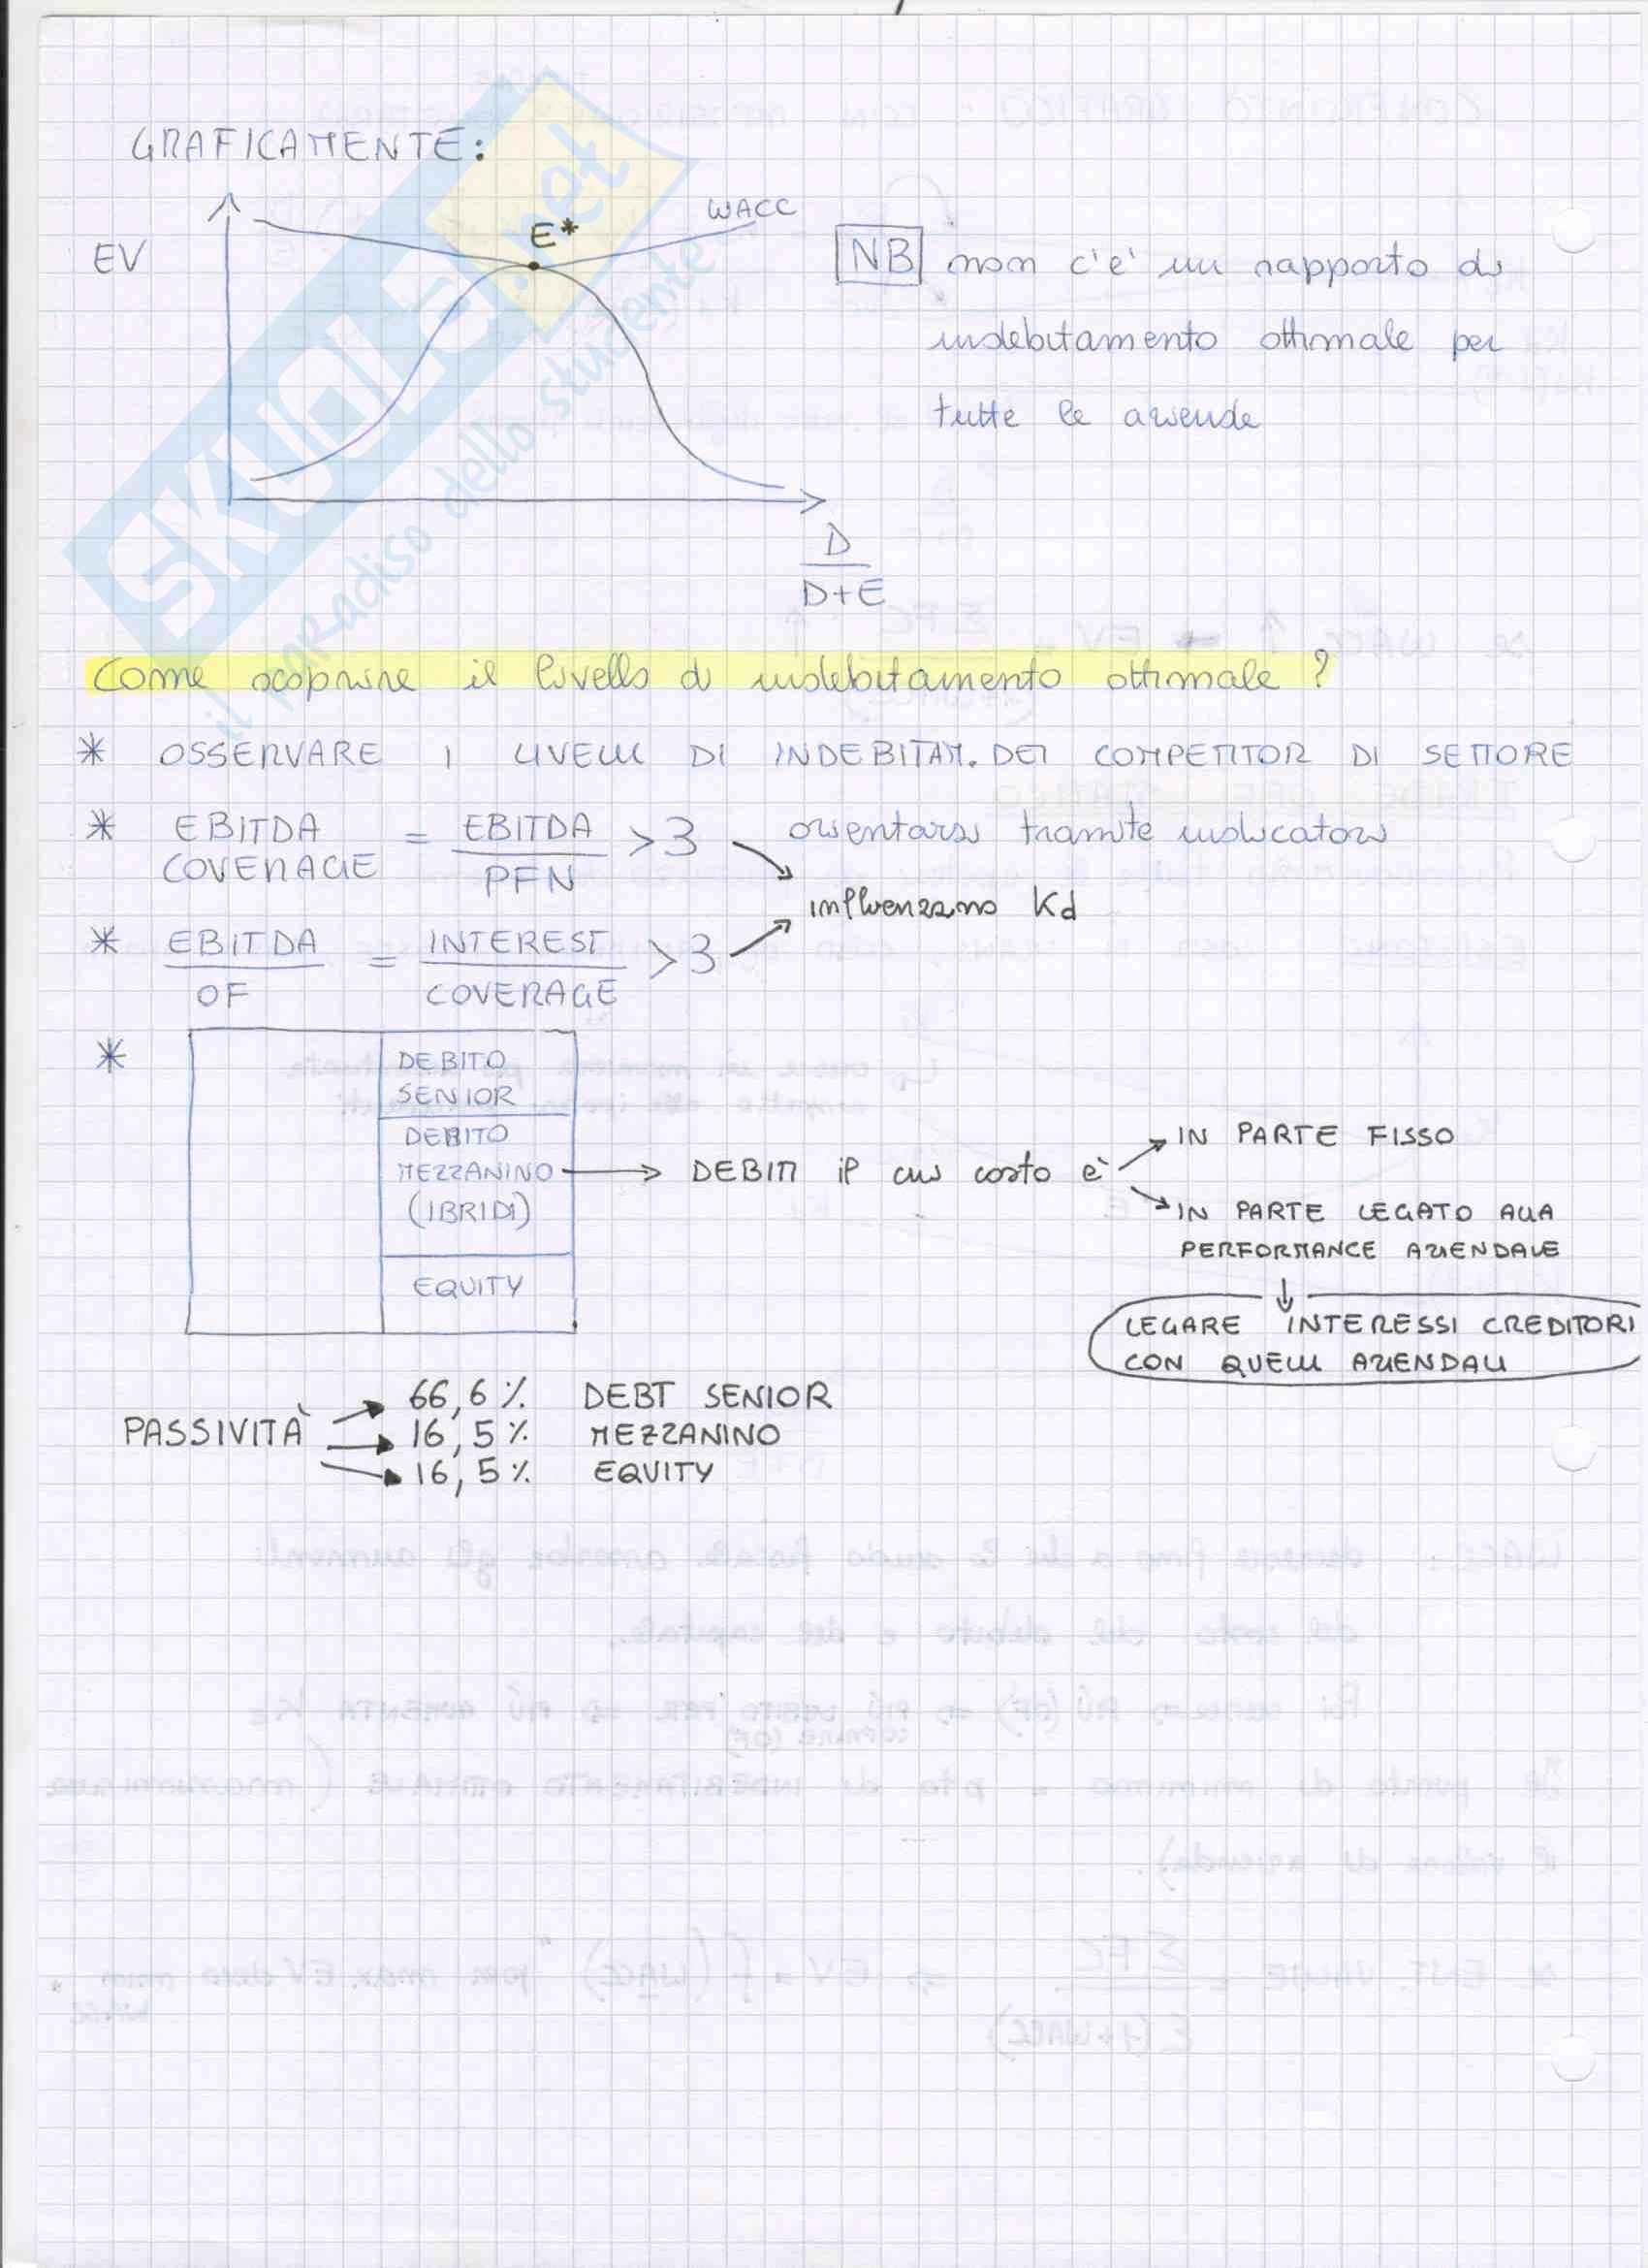 GRAFICAMENTE:
WACC
E*
EV
NB non c'e' un rapporto di
indebitamento ottimale per
tutte le aziende
D
D+E
SKUOLA.net
il paradiso dello studente
Come scoprire il livello di indebitamento ottimale ?
* OSSERVARE I LIVELLI DI INDEBITAM. DEI COMPETITOR DI SETTORE
* EBITDA COVERAGE = EBITDA / PFN >3 orientarsi tramite indicatori
influenzano Kd
* EBITDA / OF = INTEREST / COVERAGE >3
*
DEBITO
SENIOR
DEBITO
MEZZANINO
(IBRIDI)
EQUITY
DEBITI il cui costo è
IN PARTE FISSO
IN PARTE LEGATO ALLA
PERFORMANCE AZIENDALE
LEGARE INTERESSI CREDITORI
CON QUELLI AZIENDALI
PASSIVITÀ
66,6 % DEBT SENIOR
16,5 % MEZZANINO
16,5 % EQUITY